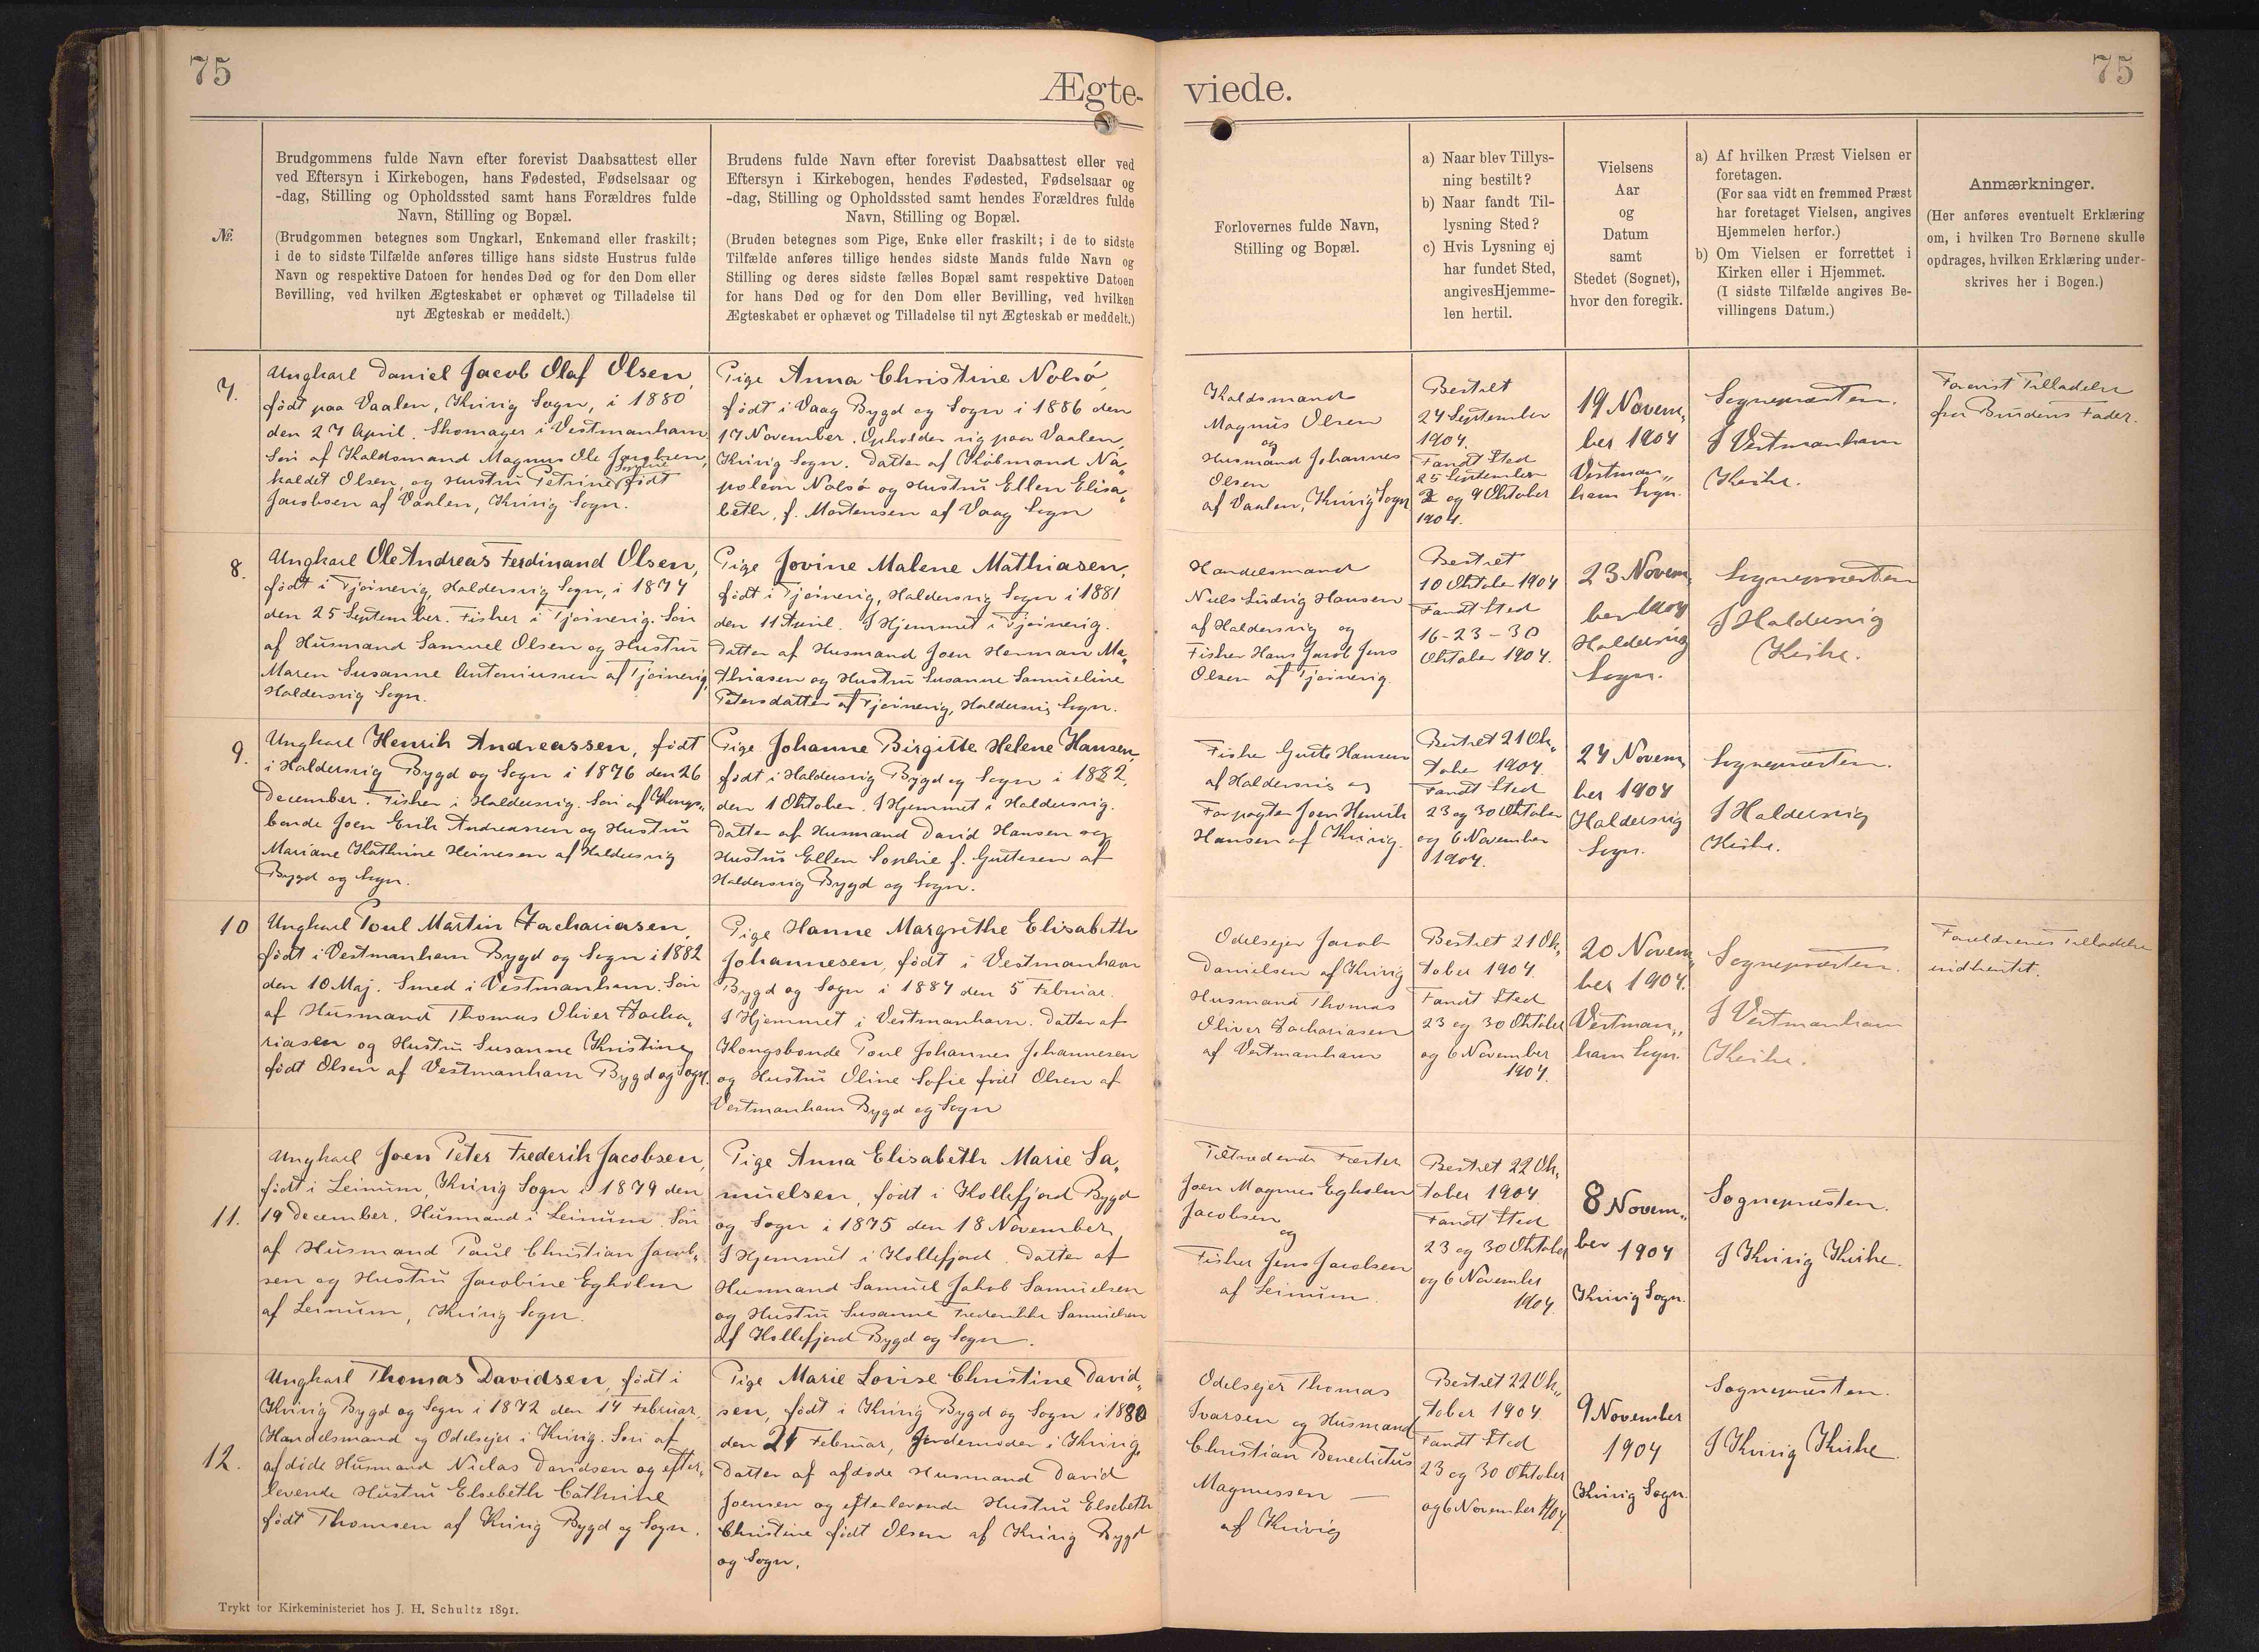 75
Ægte-
viede.
75
№
Brudgommens fulde Navn efter forevist Daabsattest eller
ved Eftersyn i Kirkebogen, hans Fødested, Fødselsaar og
-dag, Stilling og Opholdssted samt hans Forældres fulde
Navn, Stilling og Bopæl.
(Brudgommen betegnes som Ungkarl, Enkemand eller fraskilt;
i de to sidste Tilfælde anføres tillige hans sidste Hustrus fulde
Navn og respektive Datoen for hendes Død og for den Dom eller
Bevilling, ved hvilken Ægteskabet er ophævet og Tilladelse til
nyt Ægteskab er meddelt.)
Brudens fulde Navn efter forevist Daabsattest eller ved
Eftersyn i Kirkebogen, hendes Fødested, Fødselsaar og
-dag, Stilling og Opholdssted samt hendes Forældres fulde
Navn, Stilling og Bopæl.
(Bruden betegnes som Pige, Enke eller fraskilt; i de to sidste
Tilfælde anføres tillige hendes sidste Mands fulde Navn og
Stilling og deres sidste fælles Bopæl samt respektive Datoen
for hans Død og for den Dom eller Bevilling, ved hvilken
Ægteskabet er ophævet og Tilladelse til nyt Ægteskab er meddelt.)
Forlovernes fulde Navn,
Stilling og Bopæl.
a) Naar blev Tillys-
ning bestilt?
b) Naar fandt Til-
lysning Sted?
c) Hvis Lysning ej
har fundet Sted,
angives Hjemme-
len hertil.
Vielsens
Aar
og
Datum
samt
Stedet (Sognet),
hvor den foregik.
a) Af hvilken Præst Vielsen er
foretagen.
(For saa vidt en fremmed Præst
har foretaget Vielsen, angives
Hjemmelen herfor.)
b) Om Vielsen er forrettet i
Kirken eller i Hjemmet.
(I sidste Tilfælde angives Be-
villingens Datum.)
Anmærkninger.
(Her anføres eventuelt Erklæring
om, i hvilken Tro Børnene skulle
opdrages, hvilken Erklæring under-
skrives her i Bogen.)
7.
Ungkarl Daniel Jacob Olaf Olsen,
født paa Vaalen, Kvivig Sogn, i 1880
den 27 April. Skomager i Vestmanhavn.
Søn af Kaldsmand Magnus Ole Jacobsen,
kaldet Olsen, og Hustru Petrine født
Jacobsen af Vaalen, Kvivig Sogn.
Pige Anna Christine Nolsø,
født i Vaag Bygd og Sogn i 1886 den
17 November. Opholder sig paa Vaalen,
Kvivig Sogn. Datter af Købmand Na„
poleon Nolsø og Hustru Ellen Elisa„
beth, f. Mortensen af Vaag Sogn
Kaldsmand
Magnus Olsen
og
Husmand Johannes
Olsen
af Vaalen, Kvivig Sogn
Bestilt
24 September
1904.
Fandt Sted
25 September
2 og 9 Oktober
1904.
19 Novem„
ber 1904
Vestman„
havn Sogn.
Sognepræsten.
I Vestmanhavn
Kirke.
Forevist Tilladelse
fra Brudens Fader.
8.
Ungkarl Ole Andreas Ferdinand Olsen,
født i Tjørnevig, Haldersvig Sogn, i 1874
den 25 September. Fisker i Tjørnevig. Søn
af Husmand Samuel Olsen og Hustru
Maren Susanne Antoniussen af Tjørnevig,
Haldersvig Sogn.
Pige Jovine Malene Mathiasen,
født i Tjørnevig, Haldersvig Sogn i 1881
den 11 April. I Hjemmet i Tjørnevig.
Datter af Husmand Joen Herman Ma„
thiasen og Hustru Susanne Samueline
Petersdatter af Tjørnevig, Haldersvig Sogn.
Handelsmand
Niels Ludvig Hansen
af Haldersvig og
Fisker Hans Jacob Jens
Olsen af Tjørnevig
Bestilt
10 Oktober 1904
Fandt Sted
16-23-30
Oktober 1904.
23 Novem„
ber 1904
Haldersvig
Sogn.
Sognepræsten
I Haldersvig
Kirke.
9.
Ungkarl Henrik Andreassen, født
i Haldersvig Bygd og Sogn i 1876 den 26
December. Fisker i Haldersvig. Søn af Kongs„
bonde Joen Erik Andreassen og Hustru
Mariane Kathrine Heinesen af Haldersvig
Bygd og Sogn.
Pige Johanne Birgitte Helene Hansen,
født i Haldersvig Bygd og Sogn i 1882,
den 1 Oktober. I Hjemmet i Haldersvig.
Datter af Husmand David Hansen og
Hustru Ellen Sophie f. Guttesen af
Haldersvig Bygd og Sogn.
Fisker Gutte Hansen
af Haldersvig og
Forpagter Joen Henrik
Hansen af Kvivig.
Bestilt 21 Ok„
tober 1904.
Fandt Sted
23 og 30 Oktober
og 6 November
1904.
24 Novem„
ber 1904
Haldersvig
Sogn.
Sognepræsten.
I Haldersvig
Kirke.
10
Ungkarl Poul Martin Zachariasen,
født i Vestmanhavn Bygd og Sogn i 1882
den 10 Maj. Smed i Vestmanhavn. Søn
af Husmand Thomas Oliver Zacha„
riasen og Hustru Susanne Kristine
født Olsen af Vestmanhavn Bygd og Sogn.
Pige Hanne Margrethe Elisabeth
Johannesen, født i Vestmanhavn
Bygd og Sogn i 1884 den 5 Februar.
I Hjemmet i Vestmanhavn. Datter af
Kongsbonde Poul Johannes Johannesen
og Hustru Oline Sofie født Olsen af
Vestmanhavn Bygd og Sogn
Odelsejer Jacob
Danielsen af Kvivig
Husmand Thomas
Oliver Zachariasen
af Vestmanhavn
Bestilt 21 Ok„
tober 1904.
Fandt Sted
23 og 30 Oktober
og 6 November
1904.
20 Novem„
ber 1904.
Vestman„
havn Sogn.
Sognepræsten.
I Vestmanhavn
Kirke.
Forældrenes Tilladelse
indhentet.
11.
Ungkarl Joen Peter Frederik Jacobsen,
født i Leinum, Kvivig Sogn i 1879 den
19 December. Husmand i Leinum. Søn
af Husmand Paul Christian Jacob„
sen og Hustru Jacobine Egholm
af Leinum, Kvivig Sogn.
Pige Anna Elisabeth Marie Sa„
muelsen, født i Kollefjord Bygd
og Sogn i 1875 den 18 November,
I Hjemmet i Kollefjord. Datter af
Husmand Samuel Jakob Samuelsen
og Hustru Susanne Frederikke Samuelsen
af Kollefjord Bygd og Sogn.
Tiltrædende Fæster
Joen Magnus Egholm
Jacobsen
og
Fisker Jens Jacobsen
af Leinum.
Bestilt 22 Ok„
tober 1904
Fandt Sted
23 og 30 Oktober
og 6 November
1904.
8 Novem„
ber 1904
Kvivig Sogn.
Sognepræsten.
I Kvivig Kirke.
12.
Ungkarl Thomas Davidsen, født i
Kvivig Bygd og Sogn i 1872 den 14 Februar,
Handelsmand og Odelsejer i Kvivig. Søn af
afdøde Husmand Niclas Davidsen og efter„
levende Hustru Elsebeth Cathrine
født Thomsen af Kvivig Bygd og Sogn.
Pige Marie Lovise Christine David„
sen, født i Kvivig Bygd og Sogn i 1880
den 21 Februar, Jordemoder i Kvivig,
Datter af afdøde Husmand David
Joensen og efterlevende Hustru Elsebeth
Christine født Olsen af Kvivig Bygd
og Sogn.
Odelsejer Thomas
Ivarsen og Husmand
Christian Benedictus
Magnussen —
af Kvivig
Bestilt 22 Ok„
tober 1904.
Fandt Sted
23 og 30 Oktober
og 6 November 1904
9 November
1904
Kvivig Sogn.
Sognepræsten.
I Kvivig Kirke.
Trykt for Kirkeministeriet hos J. H. Schultz 1891.